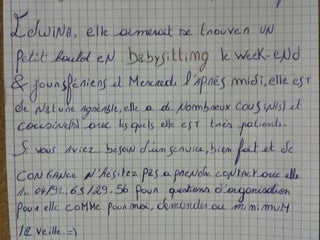 Edwina, elle aimerait se trouver un
petit boulot en babysitting le week-end
& jours fériens et Mercredi l'après midi, elle est
de nature agréable, elle a de nombreux cousin(s) et
cousine(s) avec les quels elle est très patiente.
Si vous aviez besoin d'un service, bien fait et de
confiance n'hesitez pas a prendre contact avec elle
Au 04/92.65/29.56 pour questions d'organisation
pour elle comme pour moi, demander au minimum
la veille =)